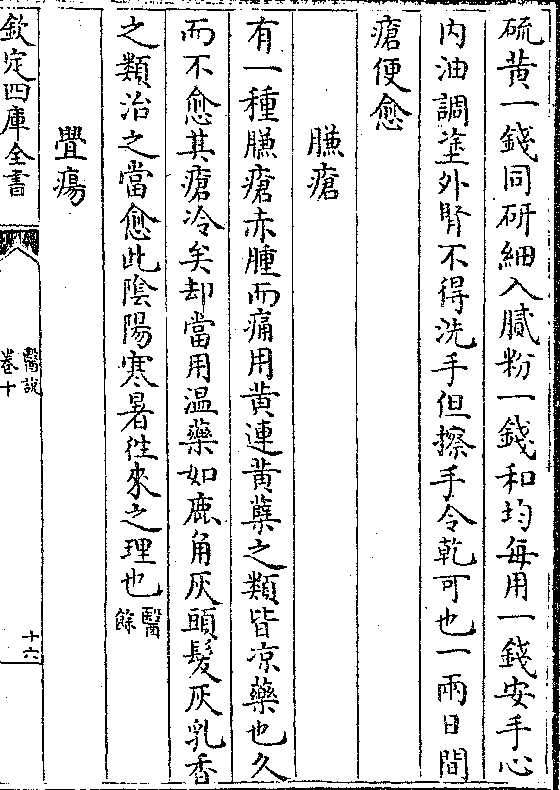 硫黄一錢同研細入膩粉一錢和均每用一錢安手心
内油調塗外腎不得洗手但擦手令乾可也一兩日間
瘡便愈
臁瘡
有一種臁瘡赤腫而痛用黄連黄蘗之類皆凉藥也久
而不愈其瘡冷矣却當用温藥如鹿角灰頭髮灰乳香
之類治之當愈此陰陽寒暑徃來之理也醫餘
疊瘍
欽定四庫全書
醫說
卷十
十六